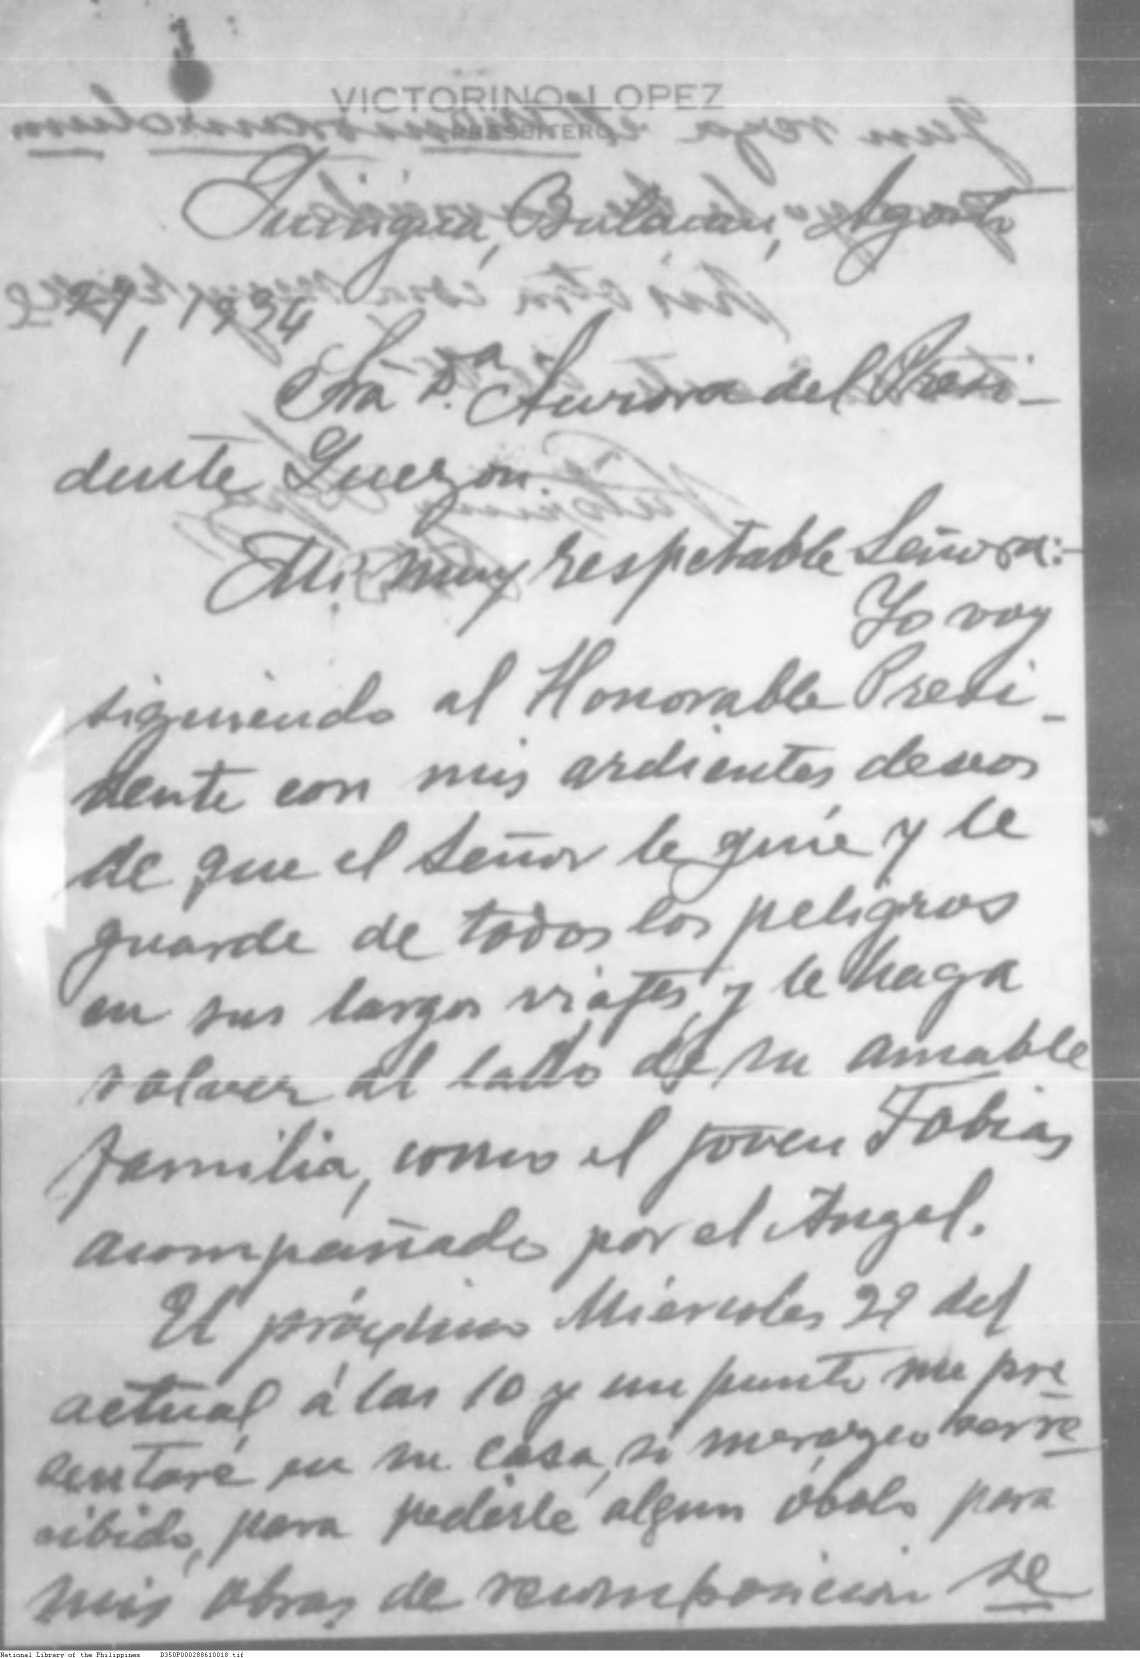 VICTORINO LOPEZ
PRESBITERO
Quiñgua, Bulacan, Agosto
27, 1934
Sra. Dª Aurora del Presi-
dente Quezon.
Mi muy respetable Señora:-
Yo voy
siguiendo al Honorable Presi-
dente con mis ardientes deseos
de que el Señor le guíe y le
guarde de todos los peligros
en sus largos viajes, y le haga
volver al lado de su amable
familia, como el joven Tobias
acompañado por el Angel.
El próximo Miércoles 29 del
actual á las 10 y en punto me pre
sentaré en su casa, si merezco ser re
cibido, para pedirle algun óbolo para
mis obras de recomposicion se
National Library of the Philippines D350P000288610018.tif